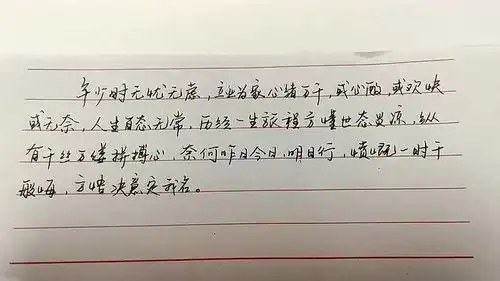 年少时无忧无虑，立业为家心绪万千，或心酸，或欢快
或无奈，人生百态无常，历经一生旅程方懂世态炎凉，纵
有千丝万缕拼搏心，奈何昨日今日，明日行，愤慨一时千
般悔，方懂决意定我名。